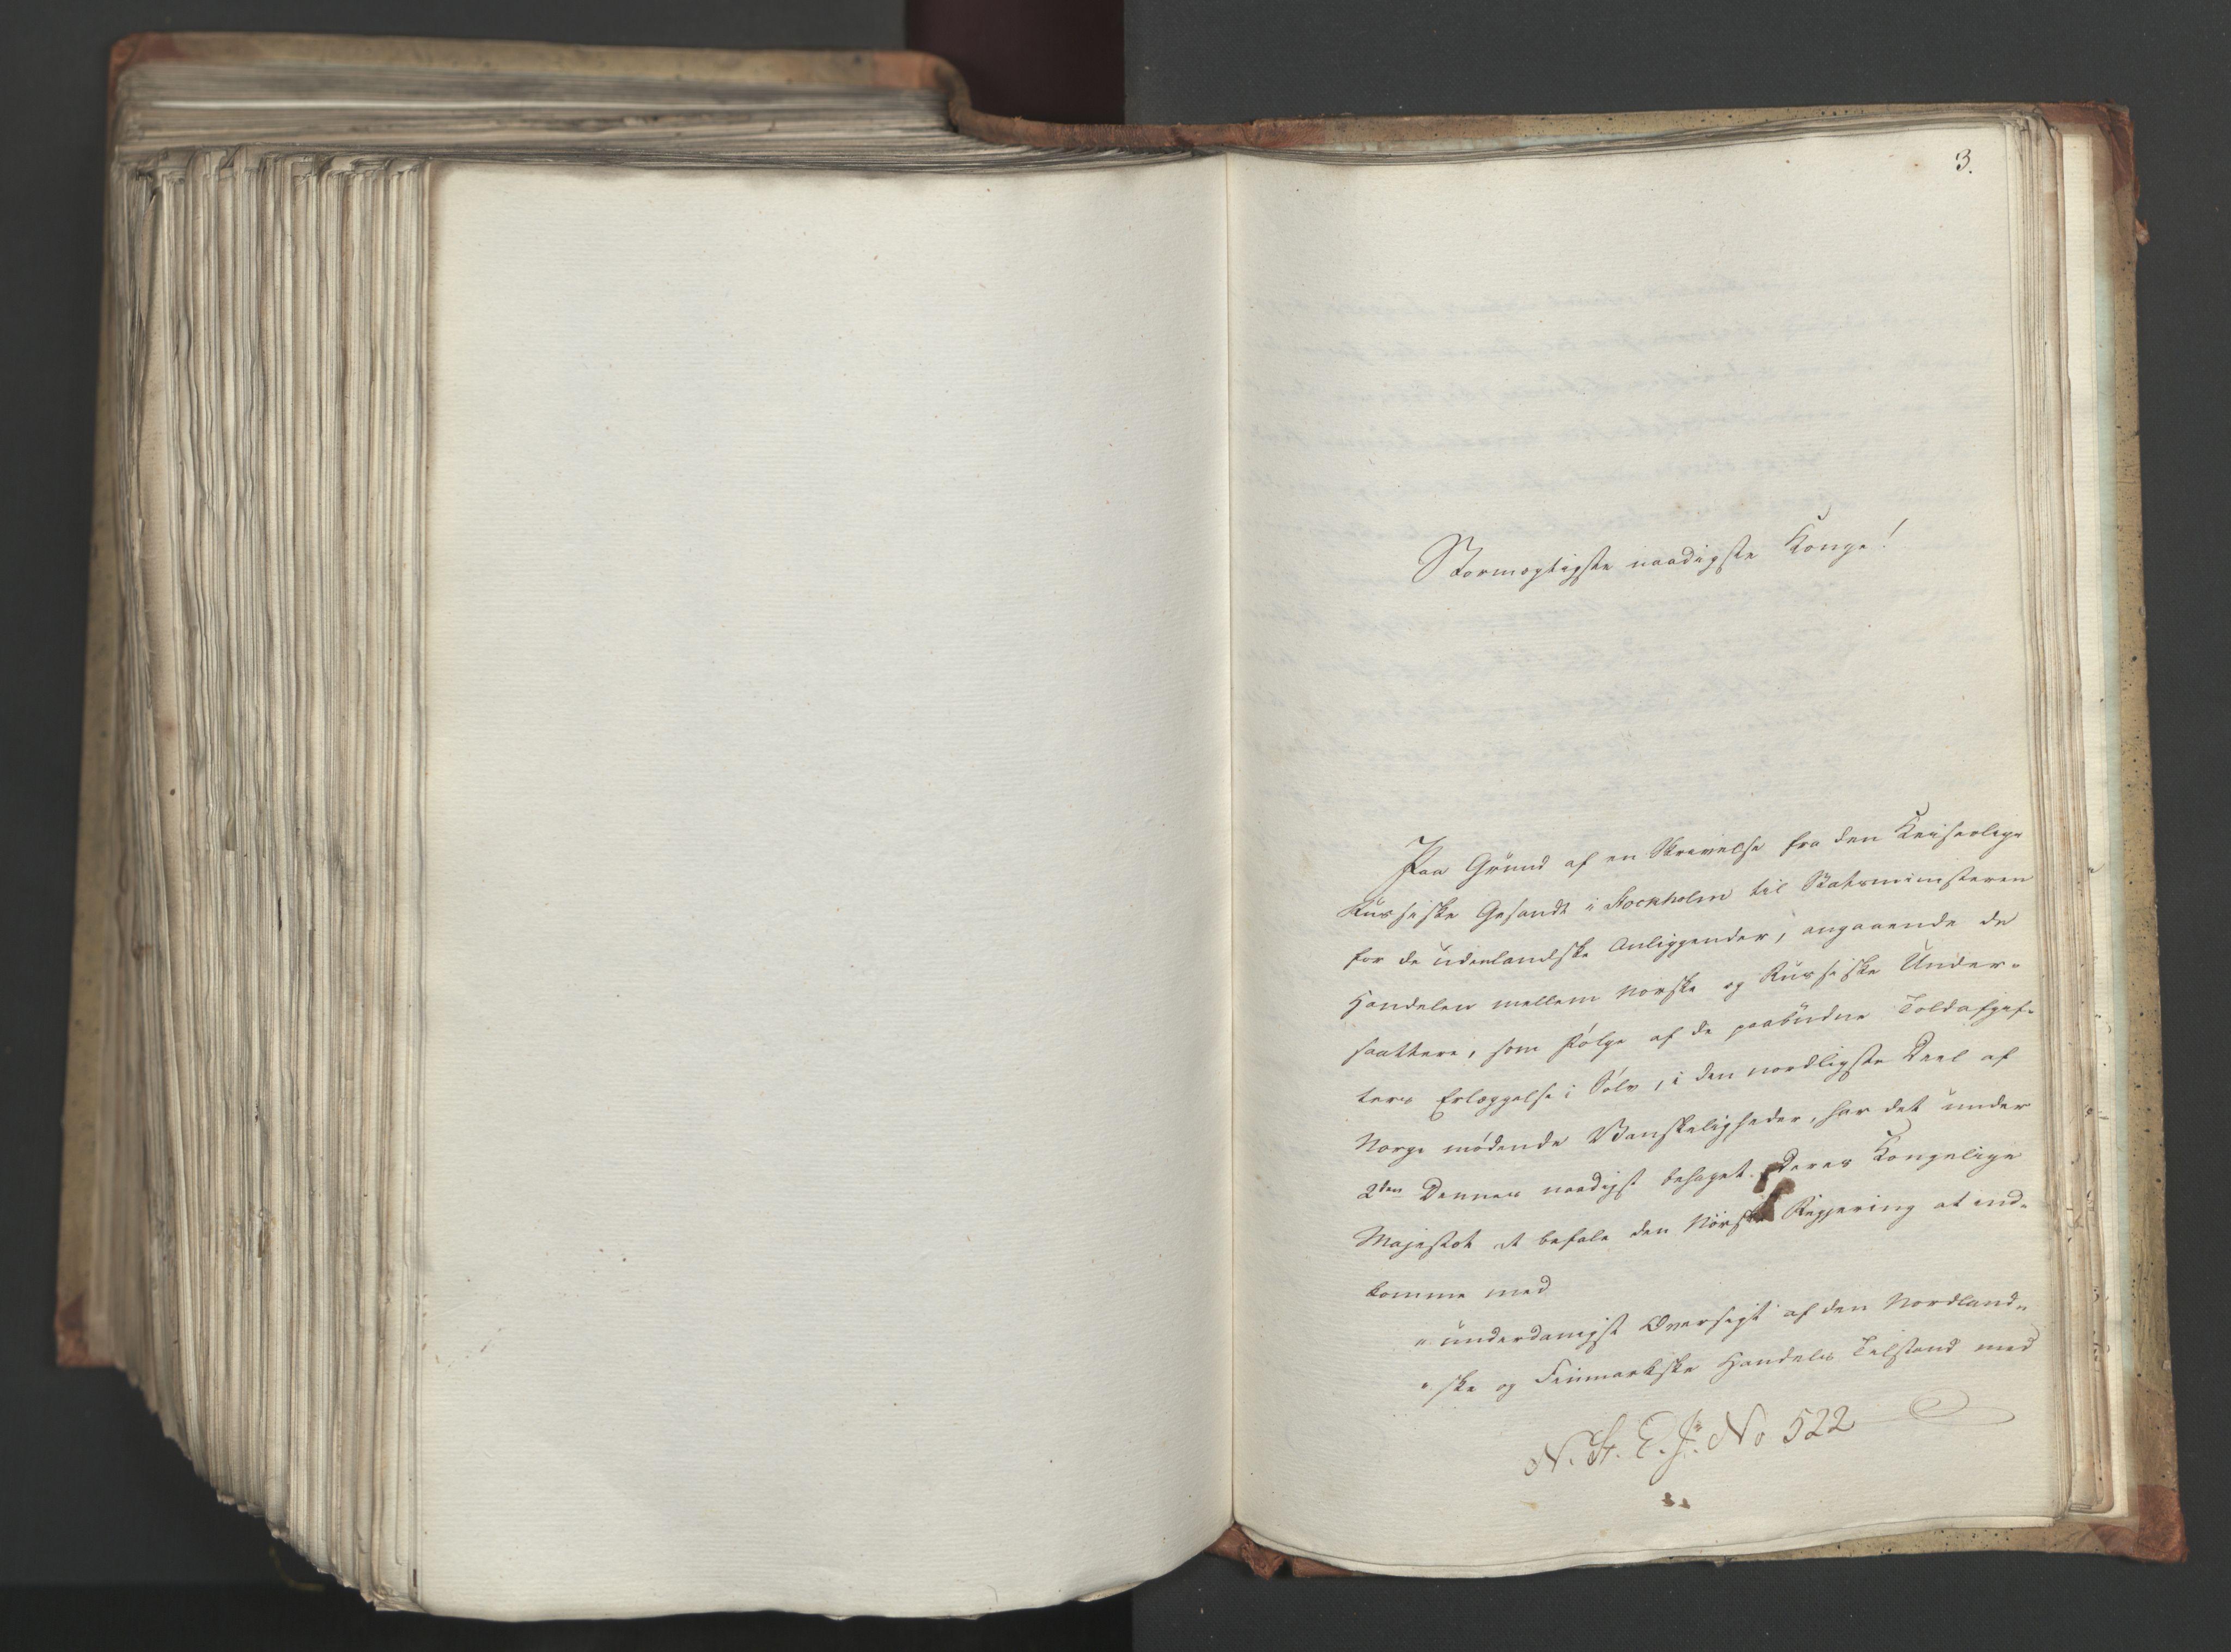 3.
Stormægtigste naadigste Konge!
Paa Grund af en Skrivelse fra den Keiserlige
Russiske Gesandt i Stockholm til Statsministeren
for de udenlandske Anliggender, angaaende de
Handelen mellem Norske og Russiske Under-
saattere, som Følge af de paabudne Toldafgif-
ters Erlæggelse i Sølv, i den nordligste Deel af
Norge mødende Vanskeligheder, har det under
2den Dennes naadigst behaget Deres Kongelige
Majestæt at befale den Norske Regjering at ind-
komme med
"underdanigst Oversigt af den Nordland-
"ske og Finmarkske Handels Tilstand med
N. St. E. J. No 522